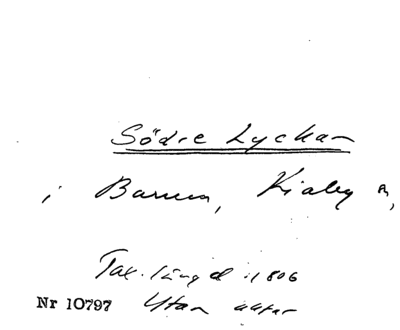 Södre Lyckan
i Barum, Kiaby sn,
Tax. längd 1806
Nr 10797 Utan